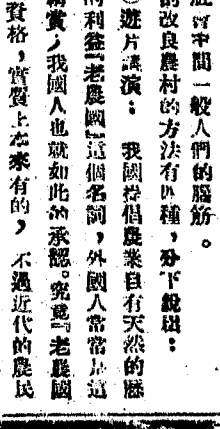 中間一般人們的腦筋。
的改良農村的方法有四種，分下說出：
遊片講演：　我國提倡農業自有天然的歷
的利益「老農國」這個名詞，外國人常常是這
稱賞，我國人也就如此的承認。究竟「老農國
資格，實質上本來有的，　不過近代的農民